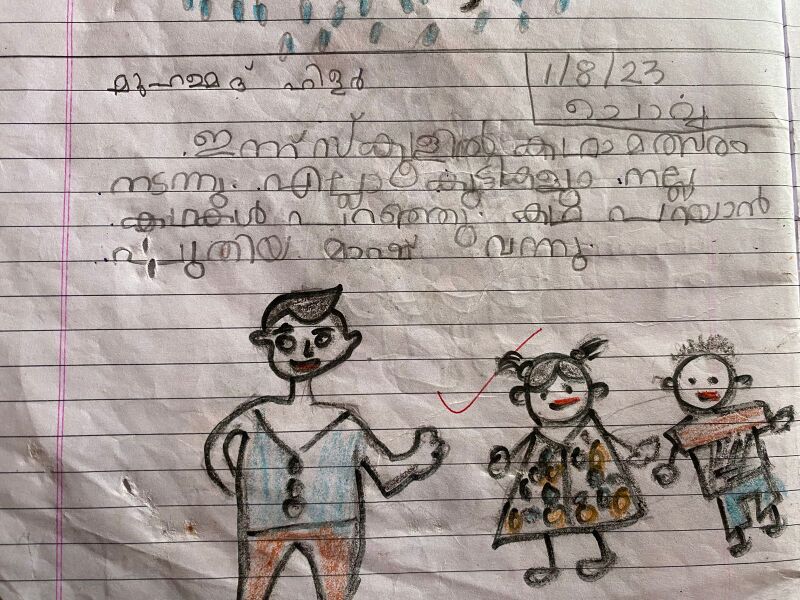 മുഹമ്മദ് ഹിളർ
1/8/23
ചൊവ്വ
ഇന്ന് സ്കൂളിൽ കഥാമത്സരം
നടന്നു. എല്ലാ കുട്ടികളും നല്ല
കഥകൾ പറഞ്ഞു. കഥ പറയാൻ
പുതിയ മാഷ് വന്നു.